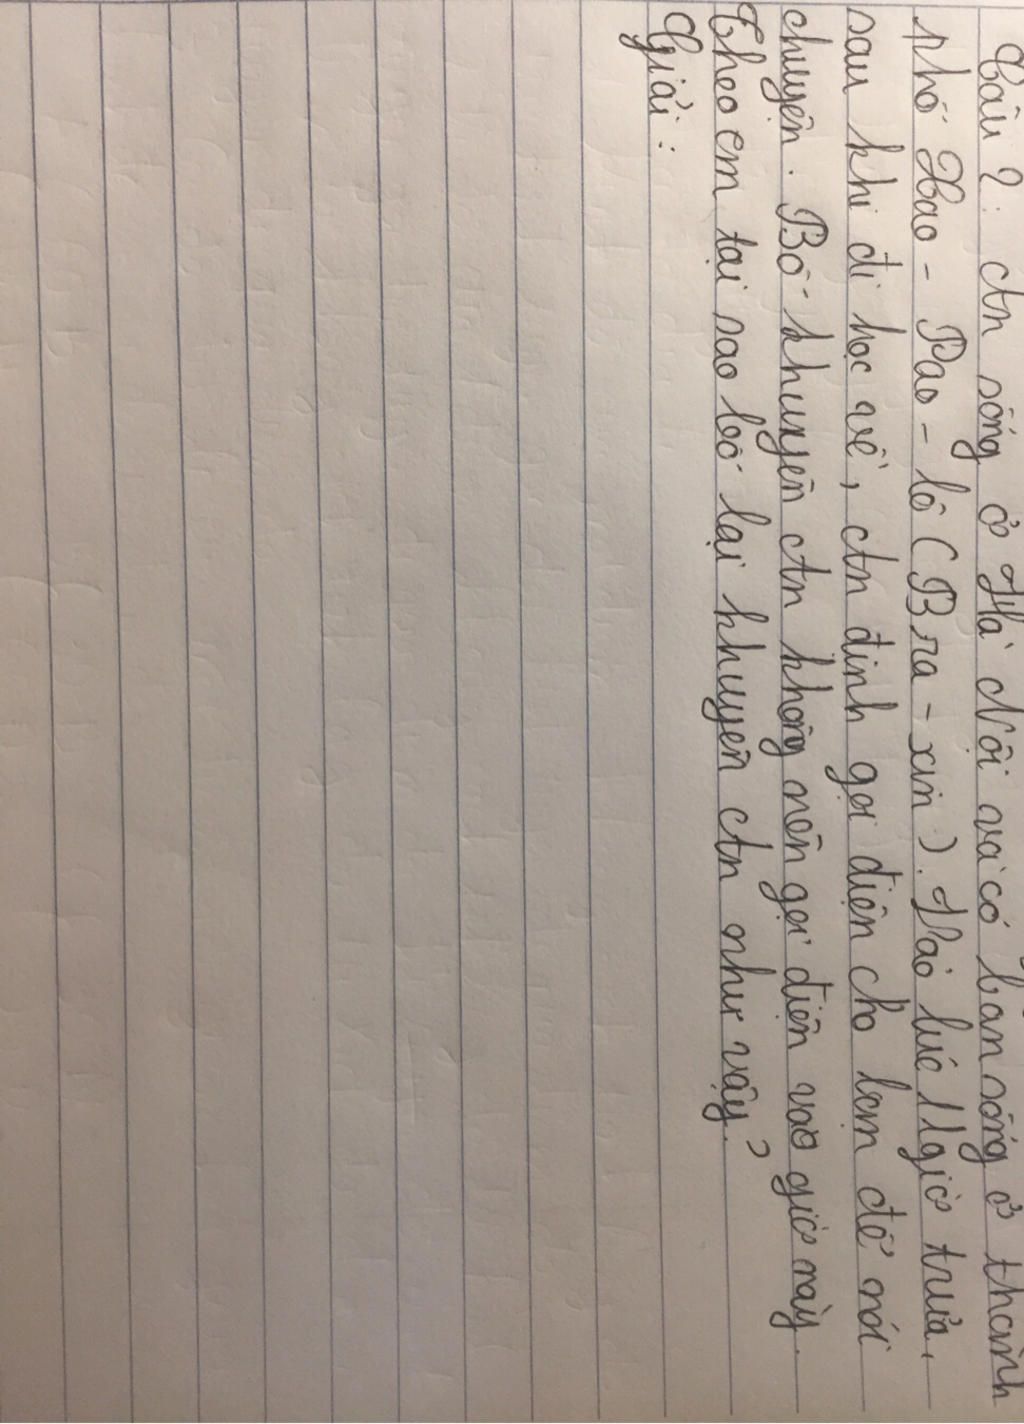 Câu 2: An sống ở Hà Nội và có bạn sống ở thành
phố Xao - Pao - lô (Bra - xin). Vào lúc 11 giờ trưa,
sau khi đi học về, An định gọi điện cho bạn để nói
chuyện. Bố khuyên An không nên gọi điện vào giờ này.
Theo em tại sao bố lại khuyên An như vậy?
Giải: